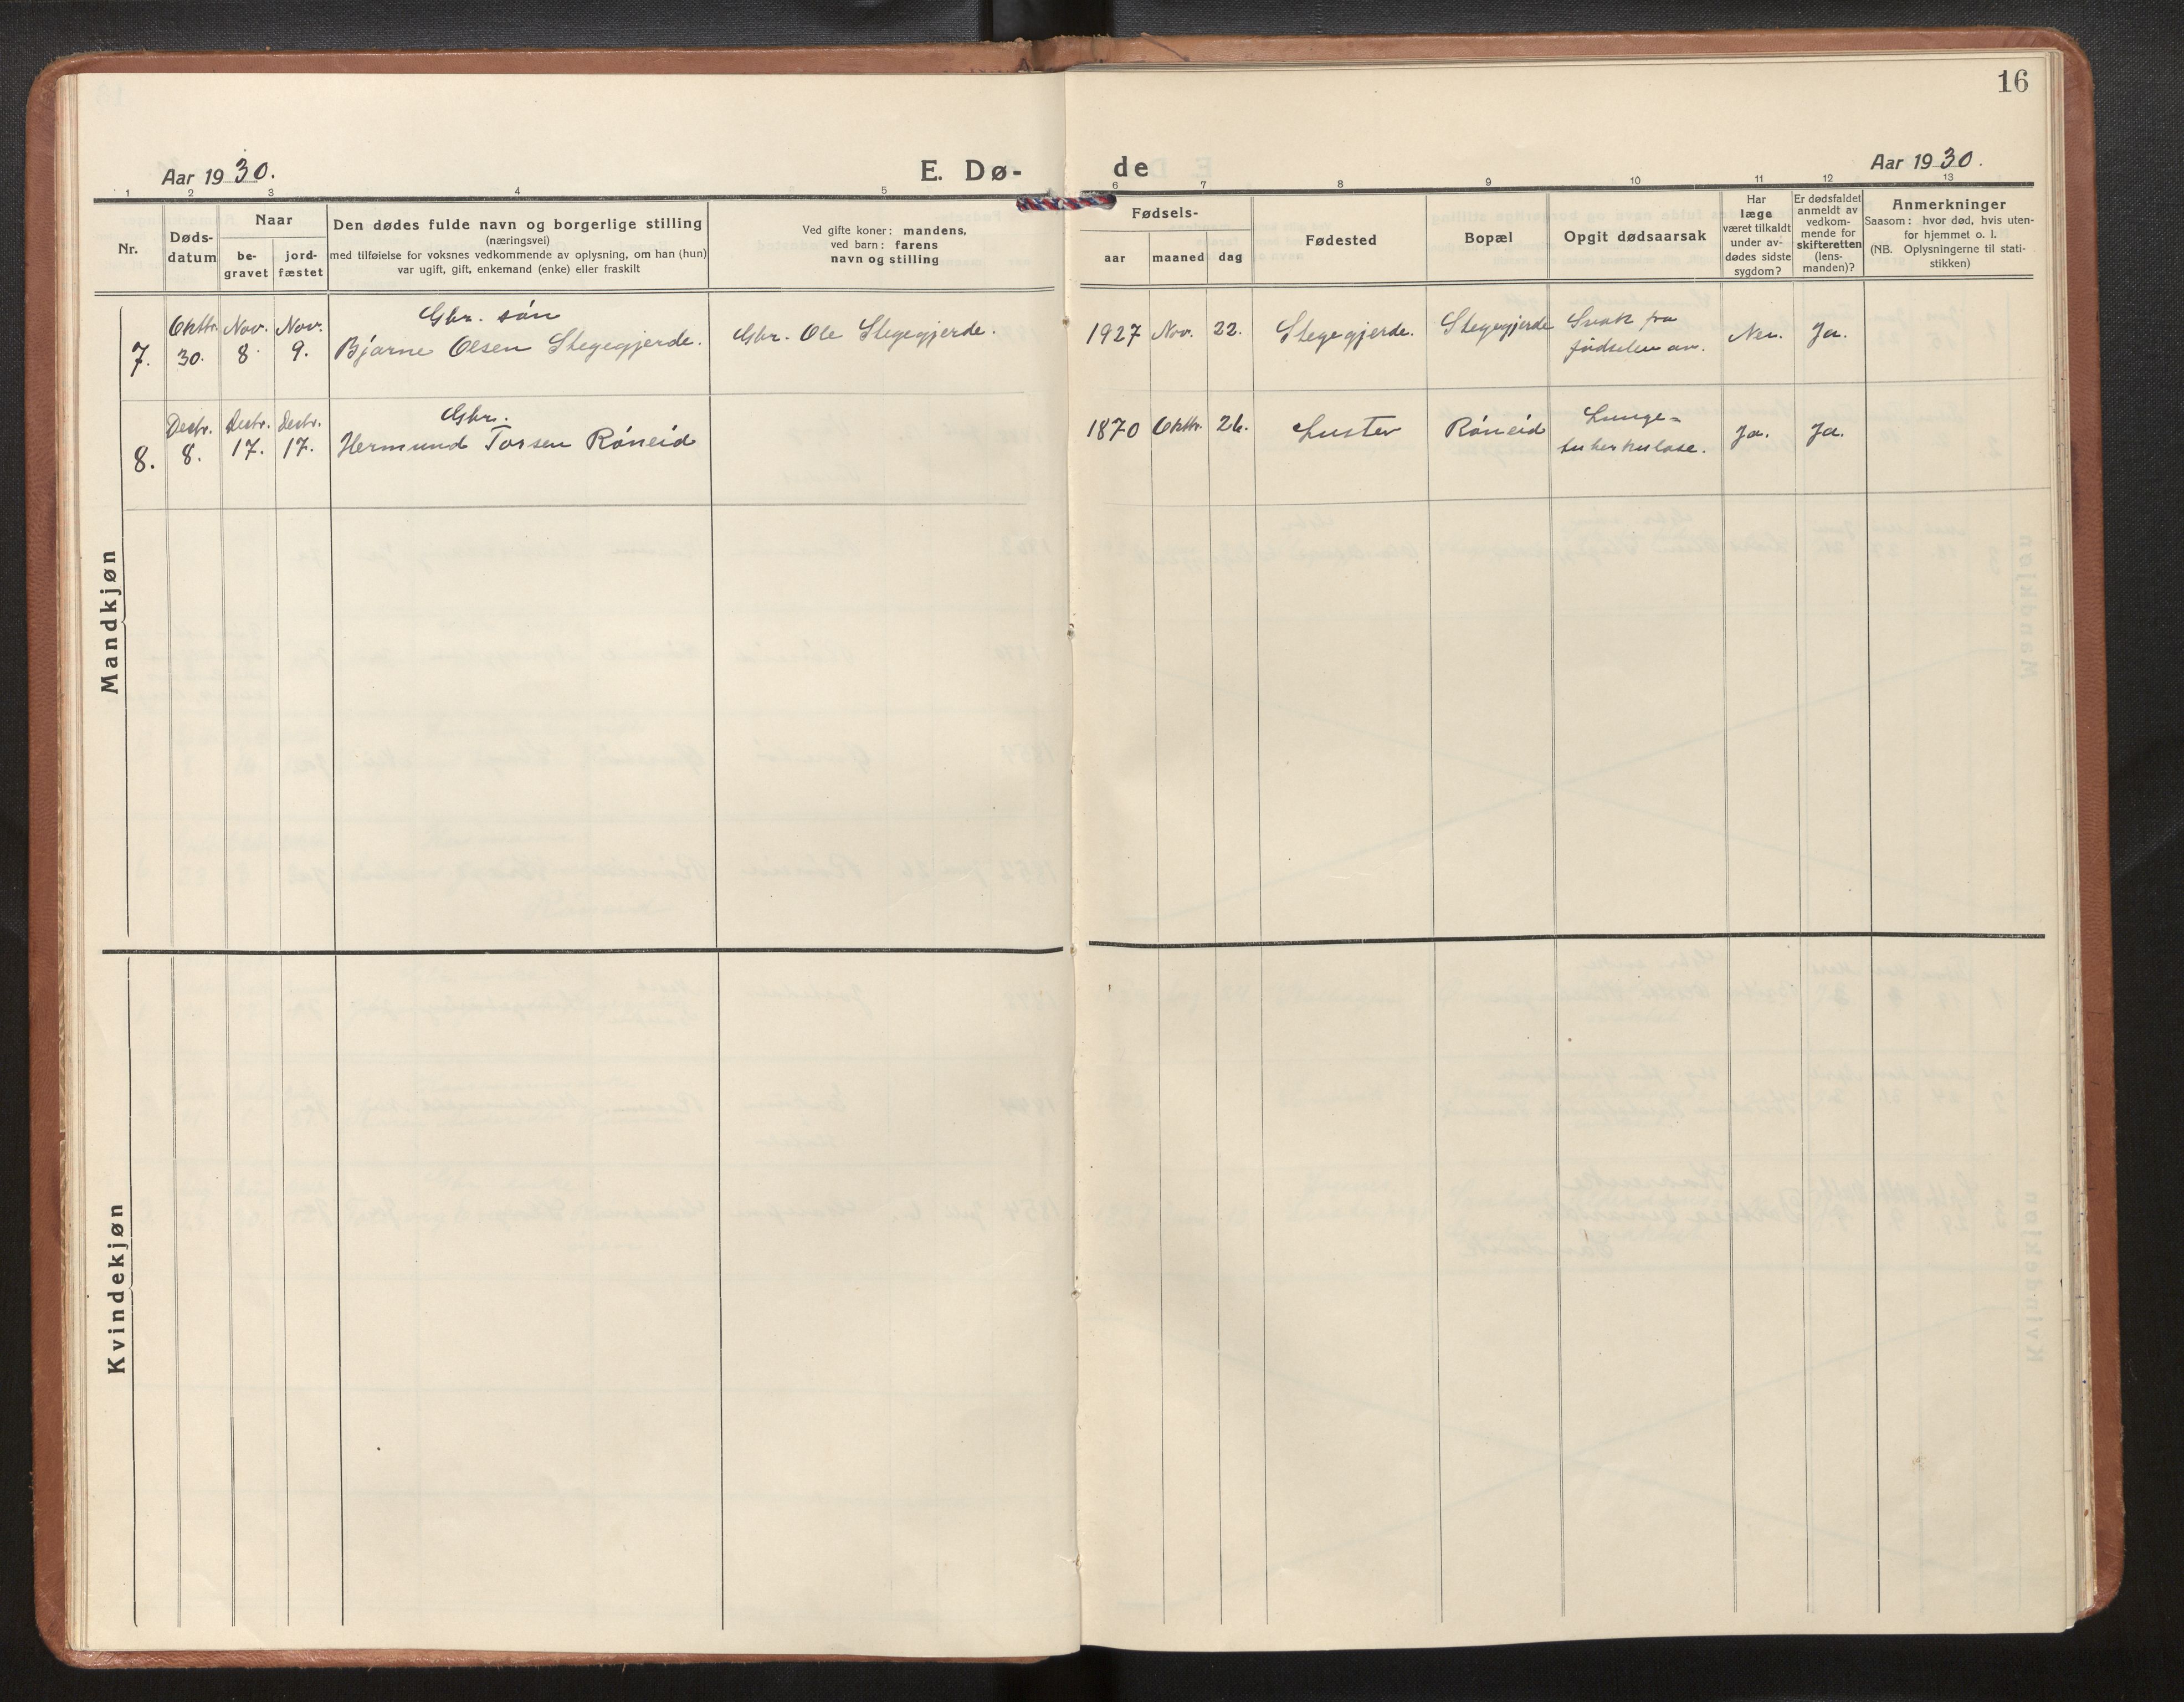 16
Aar 1930.
E. Dø-
de
Aar 1930.
1 2 3 4 5 6 7 8 9 10 11 12 13
Nr.
Døds-
datum
Naar
be-
gravet
jord-
fæstet
Den dødes fulde navn og borgerlige stilling
(næringsvei)
med tilføielse for voksnes vedkommende av oplysning, om han (hun)
var ugift, gift, enkemand (enke) eller fraskilt
Ved gifte koner: mandens,
ved barn: farens
navn og stilling
Fødsels-
aar
maaned
dag
Fødested
Bopæl
Opgit dødsaarsak
Har
læge
været tilkaldt
under av-
dødes sidste
sygdom?
Er dødsfaldet
anmeldt av
vedkom-
mende for
skifteretten
(lens-
manden)?
Anmerkninger
Saasom: hvor død, hvis uten-
for hjemmet o. l.
(NB. Oplysningerne til stati-
stikken)
Mandkjøn
7.
Oktbr.
30.
Nov.
8
Nov.
9.
Gbr. søn
Bjarne Olsen Stegegjerde.
Gbr. Ole Stegegjerde.
1927 Nov. 22.
Stegegjerde.
Stegegjerde
Svak fra
fødselen av.
Nei.
Ja.
8.
Desbr.
8.
Desbr.
17.
Desbr.
17.
Gbr.
Hermund Torsen Røneid
1870 Oktbr. 26.
Luster
Røneid
Lunge-
tuberkulose.
Ja.
Ja.
Kvindekjøn